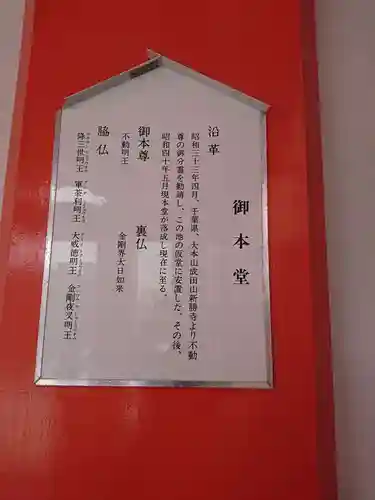 御本堂
沿革
昭和三十三年四月、千葉県、大本山成田山新勝寺より不動
尊の御分霊を勧請し、この地の仮堂に安置した。その後、
昭和四十年五月現本堂が落成し現在に至る。
御本尊　裏仏
不動明王　金剛界大日如来
脇仏
降三世明王　軍荼利明王　大威徳明王　金剛夜叉明王